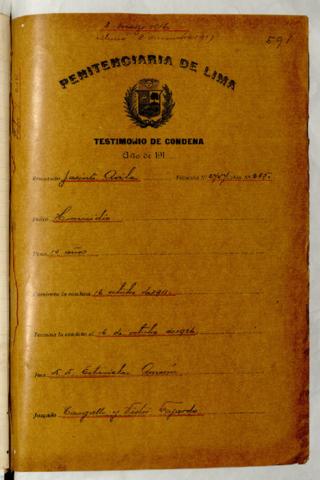 591
PENITENCIARIA DE LIMA
TESTIMONIO DE CONDENA
Año de 191
Rematado Jacinto Avila Filiación N° 2757
Delito Homicidio
Pena 15 años
Comienza la condena 16 octubre de 1911
Termina la condena el 16 de octubre de 1926
Juez
Juzgado Cangallo y Victor Fajardo